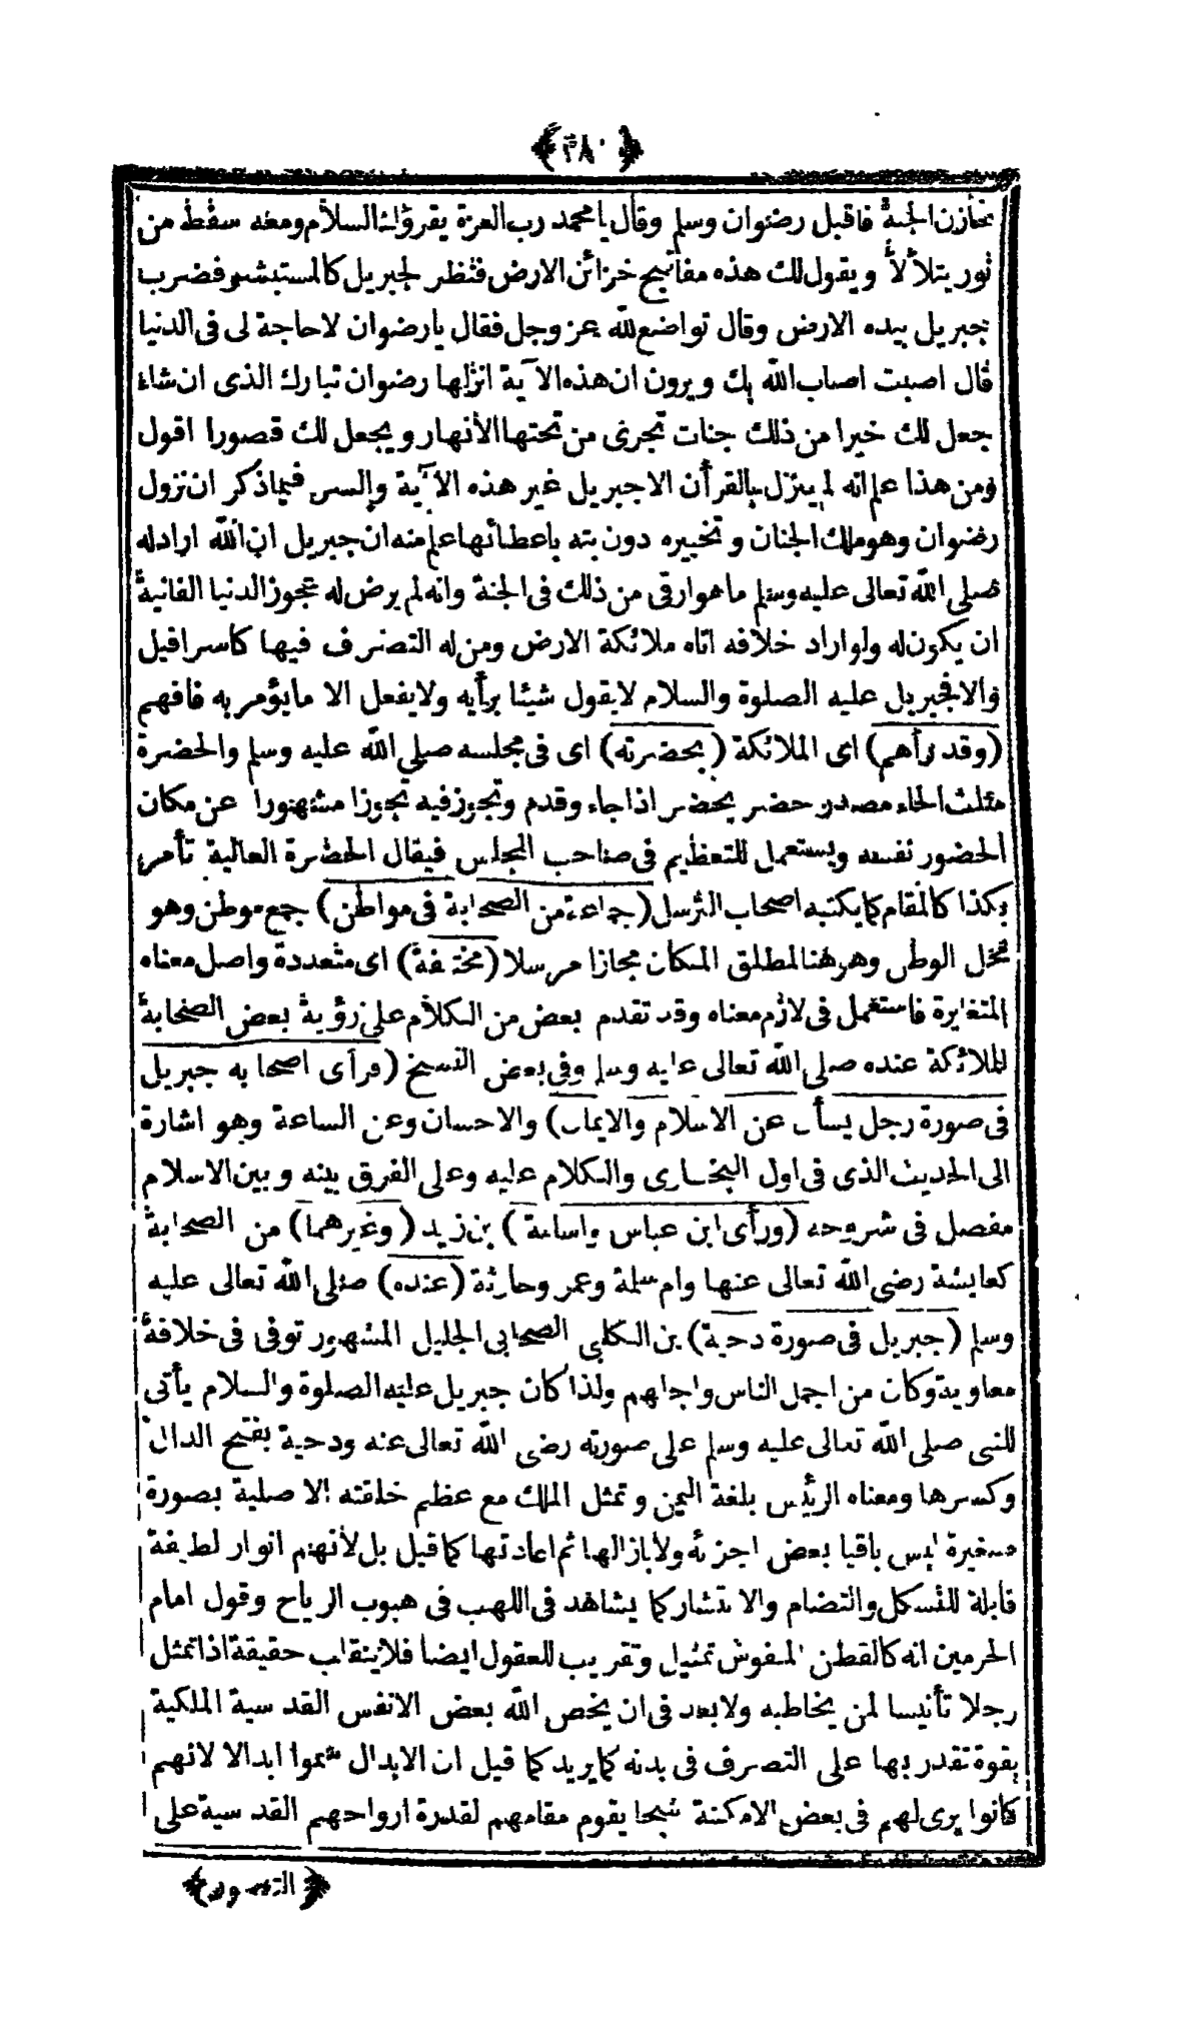 ﴿٣٨٠﴾
خازن الجنة فاقبل رضوان وسلم وقال يا محمد رب العزة يقرؤك السلام ومعه سقط من
نور يتلألأ ويقول لك هذه مفاتيح خزائن الارض فنظر لجبريل كالمستبشر فضرب
جبريل بيده الارض وقال تواضع لله عز وجل فقال يا رضوان لا حاجة لى فى الدنيا
قال اصبت اصاب الله بك ويرون ان هذه الآية انزلها رضوان تبارك الذى ان شاء
جعل لك خيرا من ذلك جنات تجرى من تحتها الأنهار ويجعل لك قصورا اقول
ومن هذا علم انه لم ينزل بالقرأن الا جبريل غير هذه الآية والسر فيما ذكر ان نزول
رضوان وهو ملك الجنان وتخييره دون بته باعطائها علم منه ان جبريل ان الله اراد له
صلى الله تعالى عليه وسلم ما هو ارقى من ذلك فى الجنة وانه لم يرض له عجوز الدنيا الفانية
ان يكون له ولو اراد خلافه اتاه ملائكة الارض ومن له التصرف فيها كاسرافيل
والا فجبريل عليه الصلوة والسلام لا يقول شيئا برأيه ولا يفعل الا ما يؤمر به فافهم
(وقد رأهم) اى الملائكة (بحضرته) اى فى مجلسه صلى الله عليه وسلم والحضرة
مثلث الحاء مصدر حضر يحضر اذا جاء وقدم وتجوز فيه تجوزا مشهورا عن مكان
الحضور نفسه ويستعمل للتعظيم فى صاحب المجلس فيقال الحضرة العالية تأمر
بكذا كالمقام كما يكتبه اصحاب الترسل (جماعة من الصحابة فى مواطن) جمع موطن وهو
محل الوطن وهو هنا لمطلق المكان مجازا مرسلا (مختلفة) اى متعددة واصل معناه
المتغايرة فاستعمل فى لازم معناه وقد تقدم بعض من الكلام على رؤية بعض الصحابة
للملائكة عنده صلى الله تعالى عليه وسلم وفى بعض النسخ (فرأى اصحابه جبريل
فى صورة رجل يسأل عن الاسلام والايمان) والاحسان وعن الساعة وهو اشارة
الى الحديث الذى فى اول البخارى والكلام عليه وعلى الفرق بينه وبين الاسلام
مفصل فى شروحه (ورأى ابن عباس واسامة) بن زيد (وغيرهما) من الصحابة
كعايشة رضى الله تعالى عنها وام سلمة وعمر وحارثة (عنده) صلى الله تعالى عليه
وسلم (جبريل فى صورة دحية) بن الكلبى الصحابى الجليل المشهور توفى فى خلافة
معاوية وكان من اجمل الناس واجلهم ولذا كان جبريل عليه الصلوة والسلام يأتى
للنبى صلى الله تعالى عليه وسلم على صورته رضى الله تعالى عنه ودحية بفتح الدال
وكسرها ومعناه الرئيس بلغة اليمن وتمثل الملك مع عظم خلقته الاصلية بصورة
صغيرة ليس باقيا بعض اجزئه ولا بازالها ثم اعادتها كما قيل بل لأنهم انوار لطيفة
قابلة للتشكل والتضام والانتشار كما يشاهد فى اللهب فى هبوب الرياح وقول امام
الحرمين انه كالقطن المنفوش تمثيل وتقريب للعقول ايضا فلا ينقلب حقيقة اذا تمثل
رجلا تأنيسا لمن يخاطبه ولا بعد فى ان يخص الله بعض الانفس القدسية الملكية
بقوة تقدر بها على التصرف فى بدنه كما يريد كما قيل ان الابدال سموا ابدالا لانهم
كانوا يرى لهم فى بعض الامكنة شبحا يقوم مقامهم لقدرة ارواحهم القدسية على
﴿التصور﴾